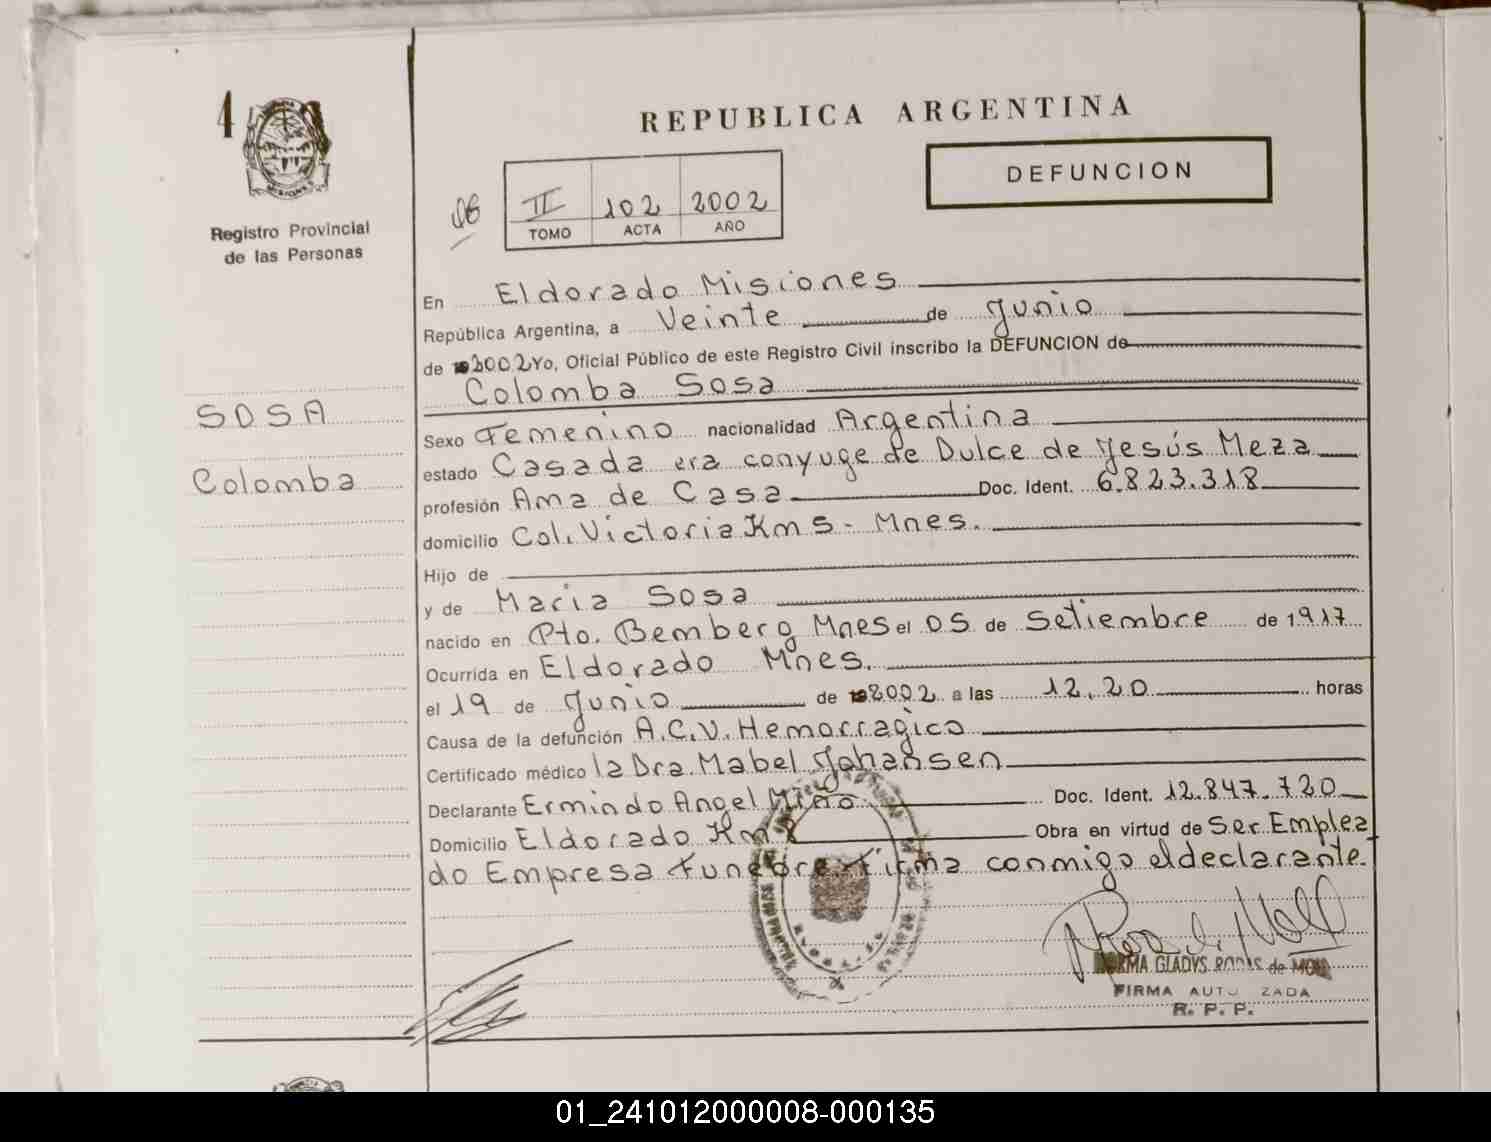 4
REPUBLICA ARGENTINA
DEFUNCION
II 102 2002
TOMO ACTA AÑO
Registro Provincial
de las Personas
SOSA
Colomba
En Eldorado Misiones
República Argentina, a Veinte de Junio
de 2002 Yo, Oficial Público de este Registro Civil inscribo la DEFUNCION de
Colomba Sosa
Sexo Femenino nacionalidad Argentina
estado Casada era conyuge de Dulce de Jesús Meza
profesión Ama de Casa Doc. Ident. 6.823.318
domicilio Col. Victoria Km 5 - Mnes.
Hijo de
y de Maria Sosa
nacido en Pto. Bemberg Mnes el 05 de Setiembre de 1917
Ocurrida en Eldorado Mnes.
el 19 de Junio de 2002 a las 12,20 horas
Causa de la defunción A.C.V. Hemorragico
Certificado médico la Dra. Mabel Johansen
Declarante Ermindo Angel Miño Doc. Ident. 12.847.720
Domicilio Eldorado Km 8 Obra en virtud de Ser Emplea
do Empresa Funebre. Firma conmigo el declarante.
NORMA GLADYS de MOLL
FIRMA AUTORIZADA
R. P. P.
01_241012000008-000135